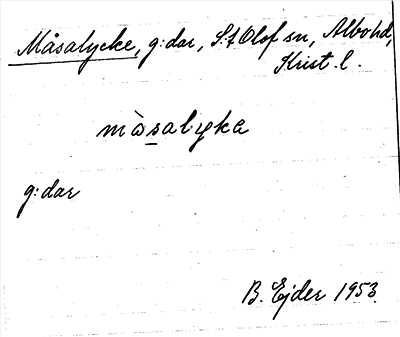 Måsalycke, g:dar, S:t Olof sn, Albo hd,
Krist. l.
måsalyka
g:dar
B. Ejder 1953